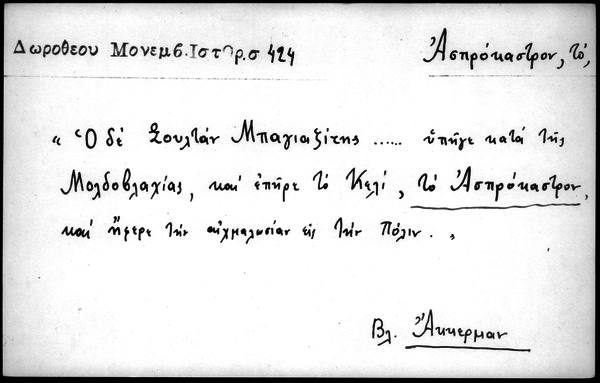 Δωροθεου Μονεμβ.Ιστορ.σ 424 Ἀσπρόκαστρον, τό,
« Ὁ δέ Σουλτάν Μπαγιαζίτης ...... ὑπῆγε κατά τῆς
Μολδοβλαχίας, καί ἐπῆρε τό Κελί, τό Ἀσπρόκαστρον,
καί ἤφερε τήν αἰχμαλωσίαν εἰς τήν Πόλιν. »
Βλ. Ἀκκερμαν